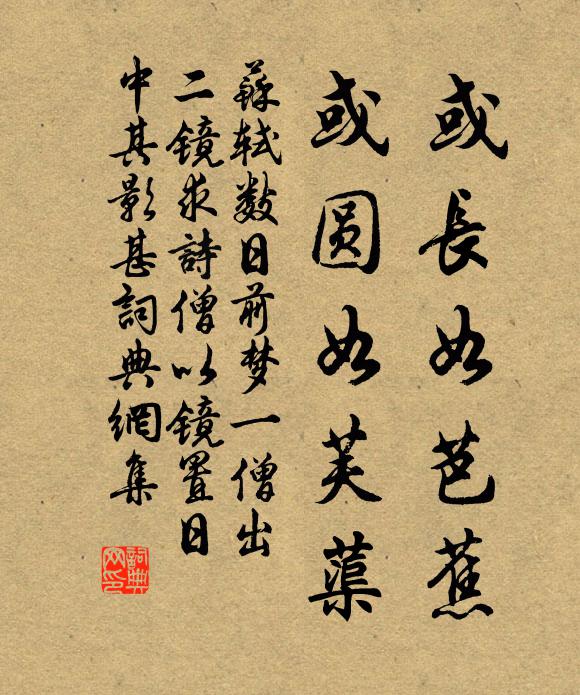 或長如芭蕉
或圆如芙蕖
蘇軾数日前梦一僧出
二镜求詩僧以镜置日
中其影甚詞典網集
詞典网印